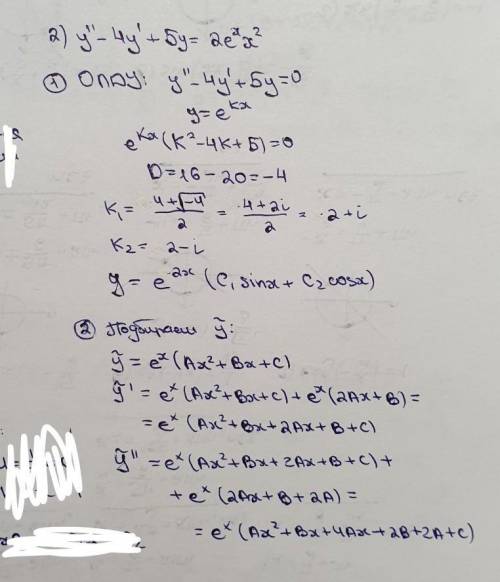 2) y'' - 4y' + 5y = 2eˣx²
① ОЛДУ: y'' - 4y' + 5y = 0
y = e^{kx}
e^{kx}(k² - 4k + 5) = 0
D = 16 - 20 = -4
k₁ = (4 + √-4)/2 = (4 + 2i)/2 = 2 + i
k₂ = 2 - i
y = e^{2x} (C₁ sinx + C₂ cosx)
② Подбираем ỹ:
ỹ = eˣ(Ax² + Bx + C)
ỹ' = eˣ(Ax² + Bx + C) + eˣ(2Ax + B) =
= eˣ(Ax² + Bx + 2Ax + B + C)
ỹ'' = eˣ(Ax² + Bx + 2Ax + B + C) +
+ eˣ(2Ax + B + 2A) =
= eˣ(Ax² + Bx + 4Ax + 2B + 2A + C)